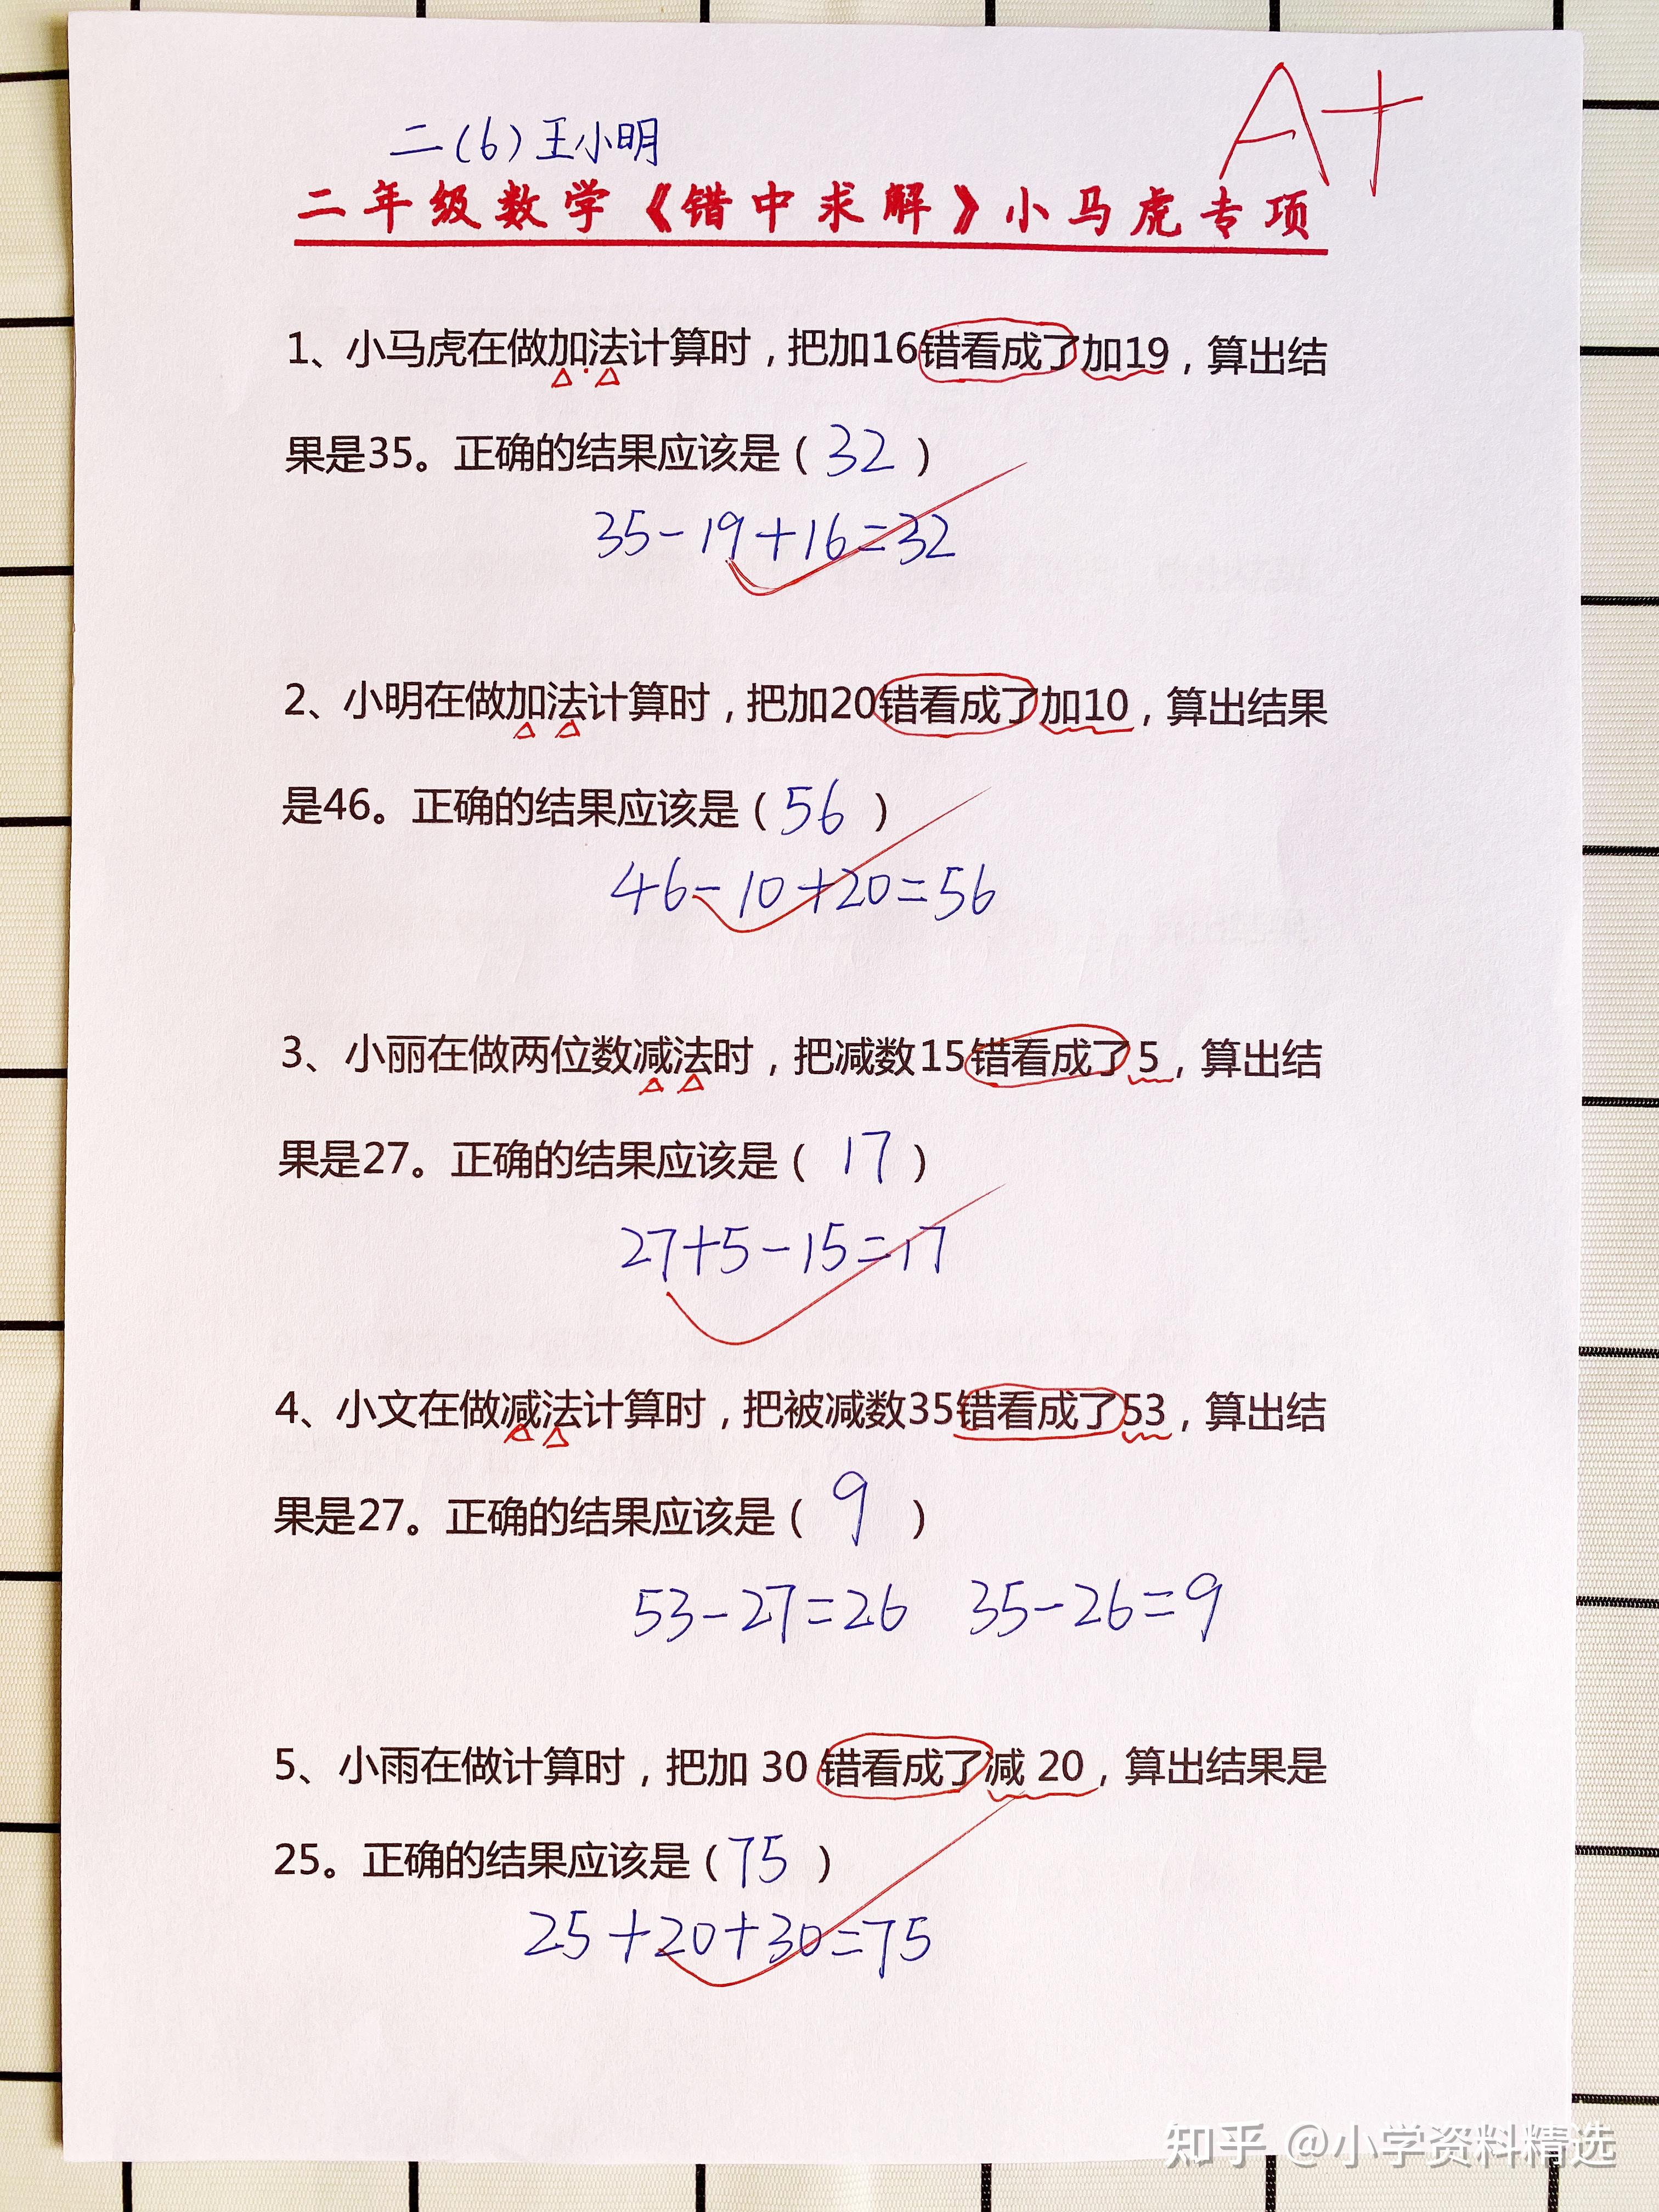 A+
二(6)王小明
二年级数学《错中求解》小马虎专项
1、小马虎在做加法计算时，把加16错看成了加19，算出结
果是35。正确的结果应该是（32）
35-19+16=32
2、小明在做加法计算时，把加20错看成了加10，算出结果
是46。正确的结果应该是（56）
46-10+20=56
3、小丽在做两位数减法时，把减数15错看成了5，算出结
果是27。正确的结果应该是（17）
27+5-15=17
4、小文在做减法计算时，把被减数35错看成了53，算出结
果是27。正确的结果应该是（9）
53-27=26 35-26=9
5、小雨在做计算时，把加 30 错看成了减 20，算出结果是
25。正确的结果应该是（75）
25+20+30=75
知乎 @小学资料精选